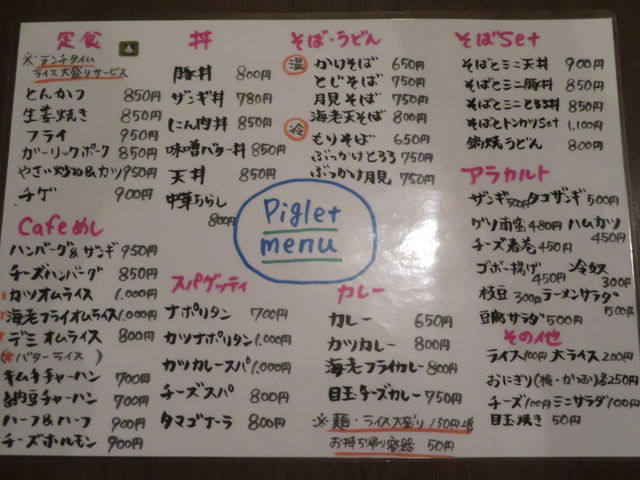 定食
※ランチタイム
ライス大盛りサービス
とんかつ 850円
生姜焼き 850円
フライ 950円
ガーリックポーク 850円
やさい炒め&カツ 950円
チゲ 900円
Cafeめし
ハンバーグ&ザンギ 950円
チーズハンバーグ 850円
カツオムライス 1,000円
海老フライオムライス 1,000円
デミオムライス 800円
(バターライス)
キムチチャーハン 700円
納豆チャーハン 700円
ハーフ&ハーフ 900円
チーズホルモン 900円
丼
豚丼 800円
ザンギ丼 780円
にん肉丼 850円
味噌バター丼 850円
天丼 850円
中華ちらし
800円
スパゲッティ
ナポリタン 700円
カツナポリタン 1,000円
カツカレースパ 1,000円
チーズスパ 800円
タマゴナーラ 800円
Piglet
menu
そば・うどん
温 かけそば 650円
とじそば 750円
月見そば 750円
海老天そば 800円
冷 もりそば 650円
ぶっかけとろろ 750円
ぶっかけ月見 750円
カレー
カレー 650円
カツカレー 800円
海老フライカレー 800円
目玉・チーズカレー 750円
※麺・ライス大盛り 150円増
お持ち帰り容器 50円
そばSet
そばとミニ天丼 900円
そばとミニ豚丼 850円
そばとミニとろろ丼 850円
そばとトンカツSet 1,100円
鍋焼うどん 800円
アラカルト
ザンギ 500円 タコザンギ 500円
ゲソ南蛮 480円 ハムカツ
450円
チーズ春巻 450円
ゴボー揚げ 450円 冷奴 300円
枝豆 300円 ラーメンサラダ
500円
豆腐サラダ 500円
その他
ライス 100円 大ライス 200円
おにぎり(梅・かつお) 各250円
チーズ 100円 ミニサラダ 100円
目玉焼き 50円